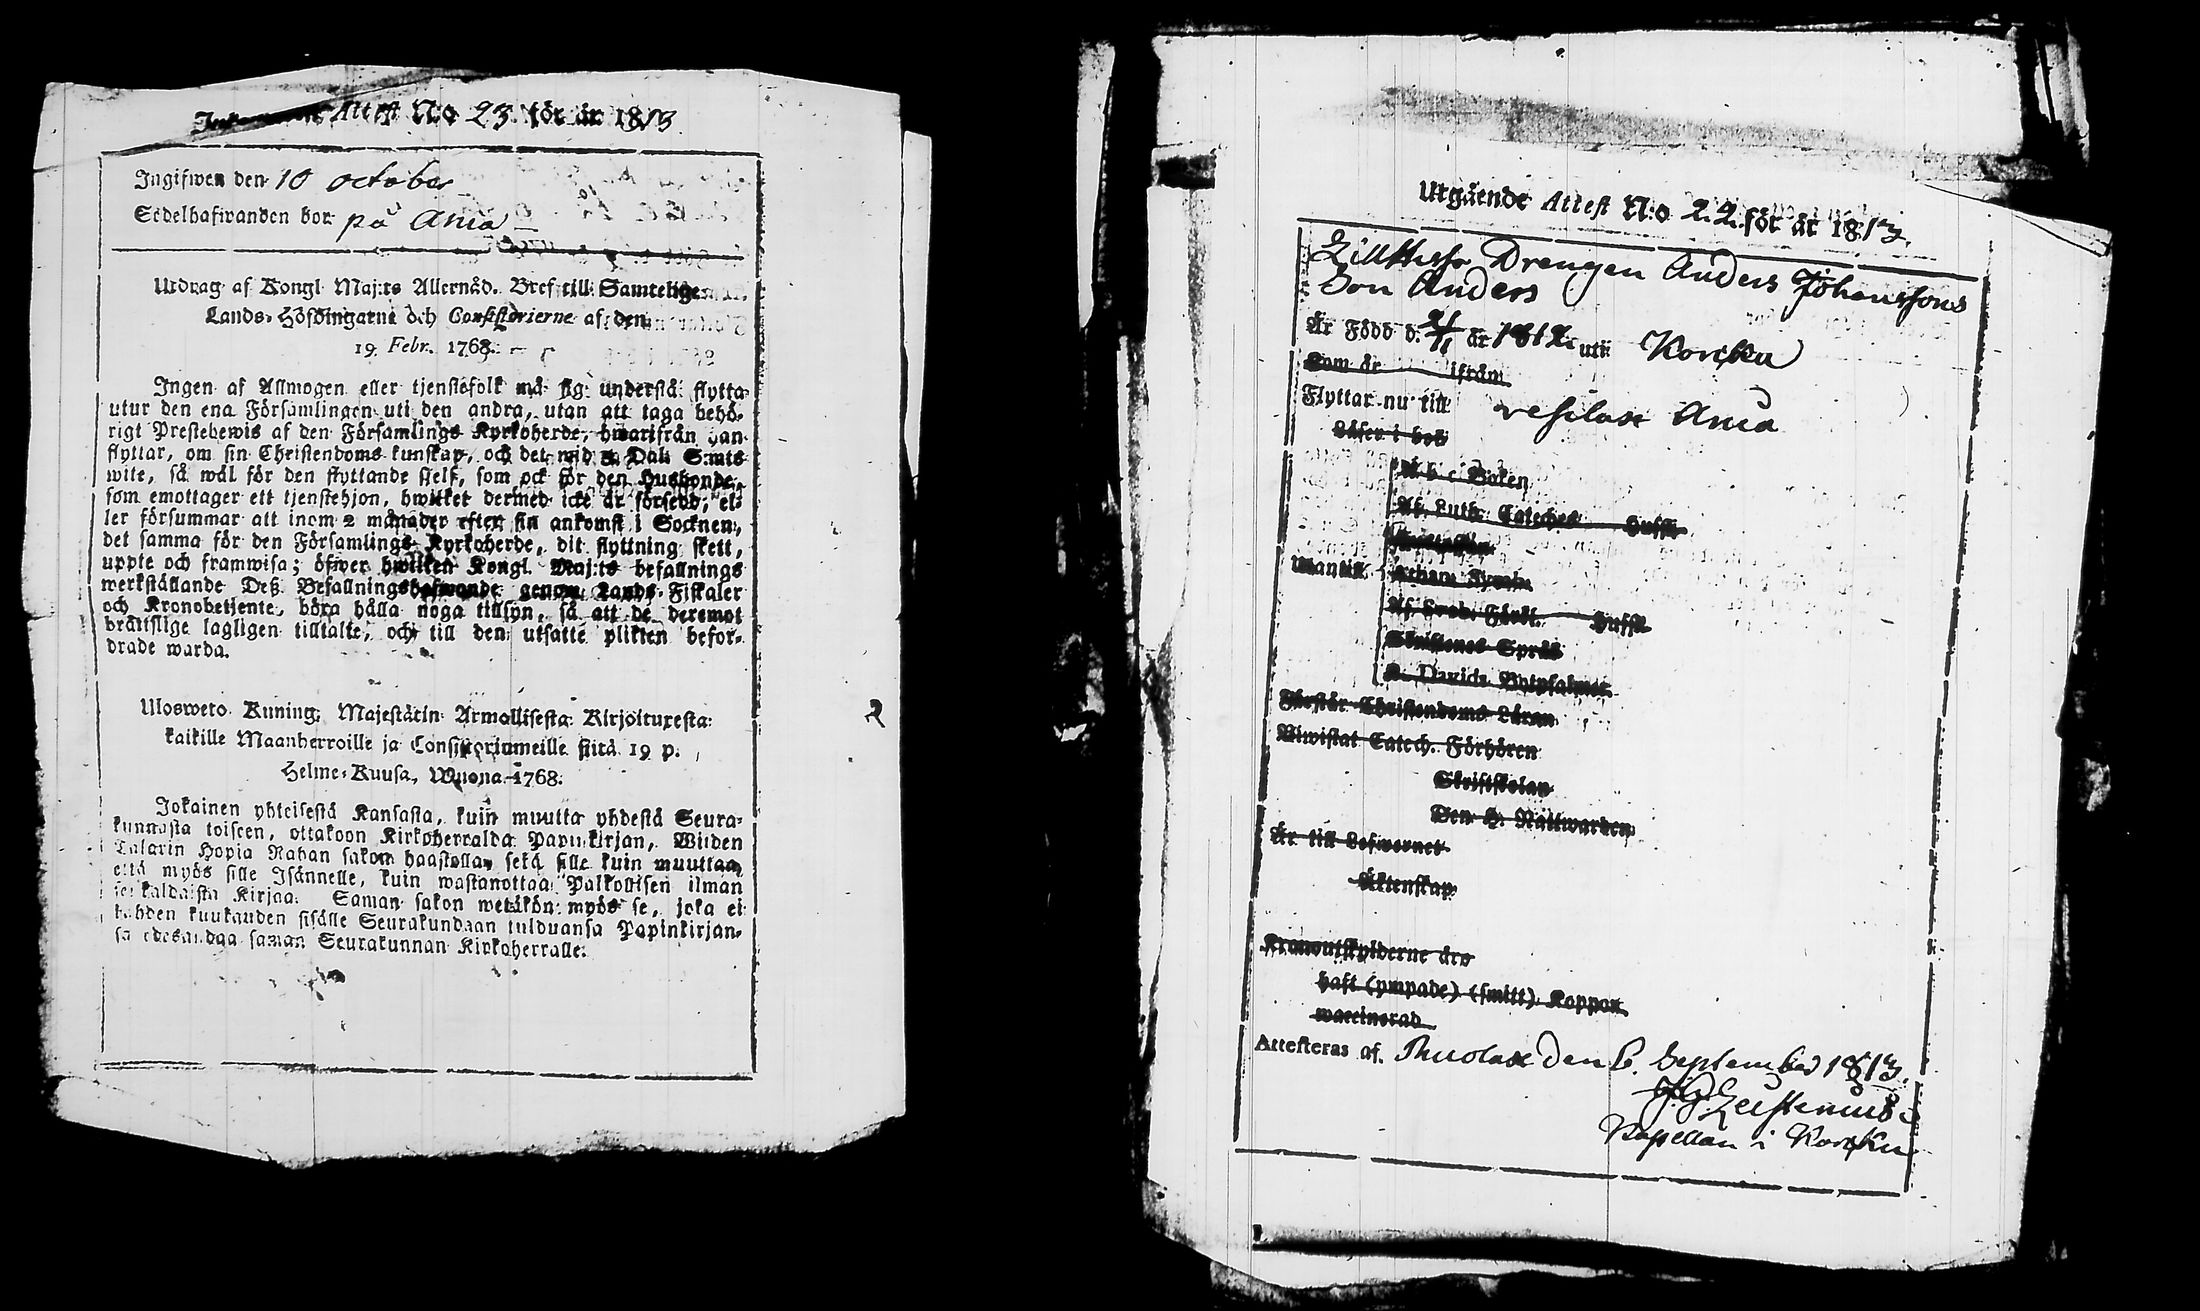 Attest No 23 för år 1813
Ingifwen den 10 october
Sedelhafwanden bor på Ania
Utdrag af Kongl Maj:ts Allernåd. Bref till Samtelige
Lands-Höfdingarne och Consistorierne af den
19 Febr. 1768.
Ingen af Allmogen eller tjenstefolk må sig understå flytta
utur den ena Församlingen uti den andra, utan att taga behö-
rigt Prestebewis af den Församlings Kyrkoherde, hwarifrån han
flyttar, om sin Christendoms kunskap, och det wid 5 Dal. S:mts
wite, så wäl för den flyttande sjelf, som ock för den Husbonde,
som emottager ett tjenstehjon, hwilket dermed icke är försedd, el-
ler försummar att inom 2 månader efter sin ankomst i Socknen,
det samma för den Församlings Kyrkoherde, dit flyttning skett,
uppte och framwisa; öfwer hwilken Kongl. Maj:ts befallnings
werkställande Deß Befallningshafwande genom Lands-Fiskaler
och Kronobetjente, böra hålla noga tillsyn, så att de deremot
bråttslige lagligen tilltalte, och till den utsatte plikten befor-
drade warda.
Ulosweto Kuning. Majestätin Armollisesta Kirjoituxesta
kaikille Maanherroille ja Consistoriumeille siitä 19 p.
Helme-Kuusa, Wuona 1768.
Jokainen yhteisestä Kansasta, kuin muutta yhdestä Seura-
kunnasta toiseen, ottakoon Kirkoherralda Papinkirjan, Wiiden
Talarin Hopia Rahan sakon haastollan sekä sille kuin muuttaa,
että myös sille Isännelle, kuin wastanottaa Palkollisen ilman
sen kaldaista Kirjaa. Saman sakon wetäkön myös se, joka ei
kahden kuukauden sisälle Seurakundaan tulduansa Papinkirjan-
sa edesandaa saman Seurakunnan Kirkoherralle.
2
Utgående Attest N:o 22. för år 1813.
Drengen Anders Johanssons
Son Anders
Är Född d. 21/11 år 1812. uti Korpku
Som är ifrån
Flyttar nu till Ania
Läser i bok
A b c Boken
Af Luth. Cateches Hufft
Utantill
Athan. Symb.
Af Sveb. Förkl. Hufft
Skriftenes Språk
K. Davids Botpsalmer
Förstår Christendoms Läran
Biwistat Catech. Förhören
Skriftskolan
Den H. Nattwarden
Är till Lefwernet
Äktenskap
Kronoutskylderne äro
haft (ympade) (smitt) Koppor
waccinerad
Attesteras af. den 6. September 1813.
Kapellan i Korpku